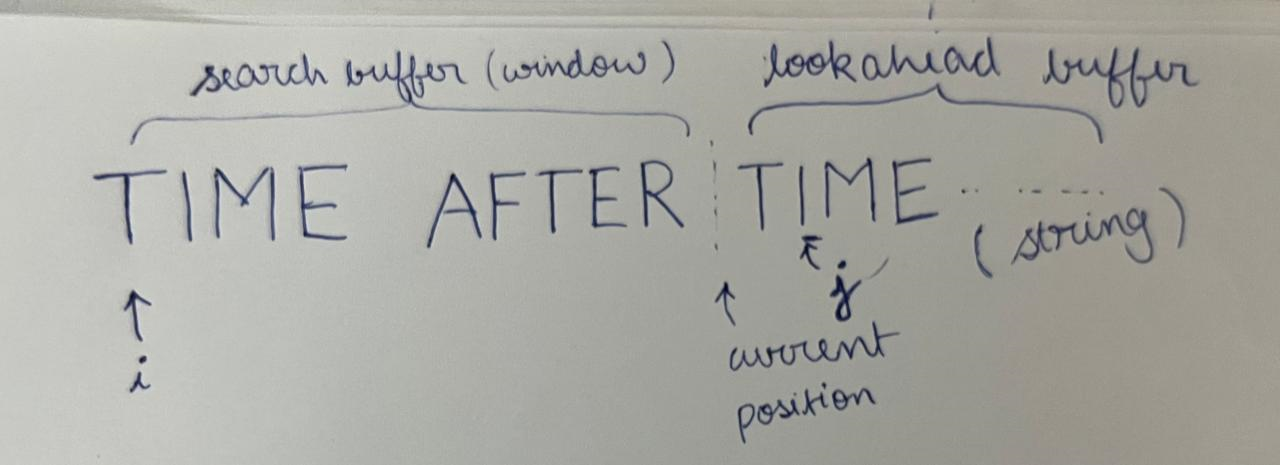 search buffer (window) lookahead buffer
TIME AFTER TIME .. ......
(string)
i
j
current
position